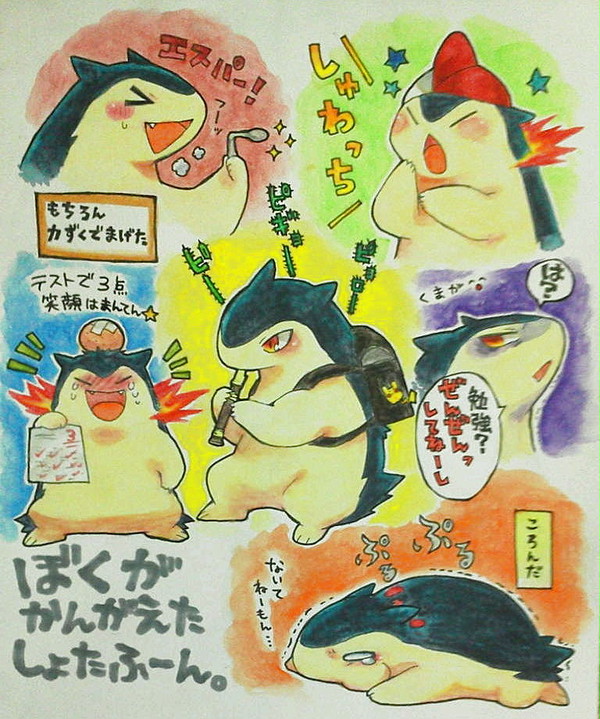 エスパー!
つーッ
もちろん
力ずくでまげた
しゅわっち
テストで3点
笑顔はまんてん
3
ピギー
くまが…
は?
勉強?
ぜんぜんっ
してねーし
ころんだ
ぷるぷる
ないて
ねーもん…
ぼくが
かんがえた
しょたふーん。